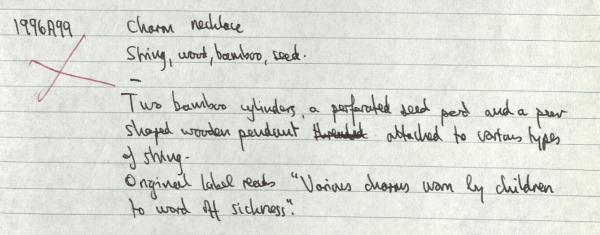 1996A99 Charm necklace
String, wood, bamboo, seed.
–
Two bamboo cylinders, a perforated seed pod and a pear
shaped wooden pendant threaded attached to various types
of string.
Original label reads "Various charms worn by children
to ward off sickness".